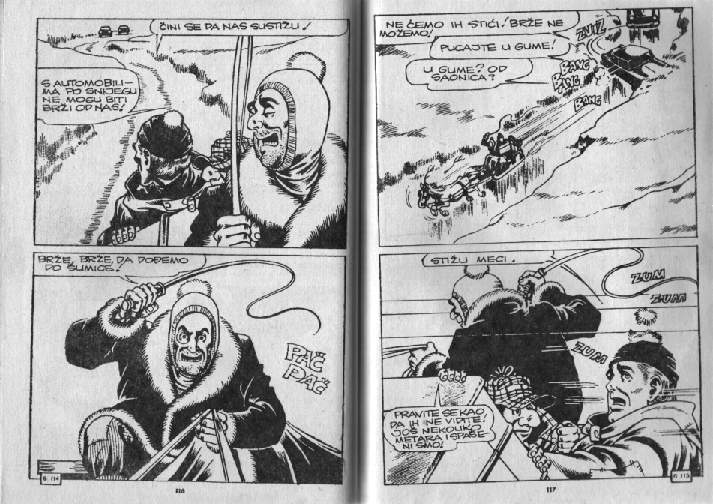 ČINI SE DA NAS SUSTIŽU!
S AUTOMOBILI-
MA PO SNIJEGU
NE MOGU BITI
BRŽI OD NAS!
BRŽE, BRŽE, DA DOĐEMO
DO ŠUMICE!
PAČ
PAČ
6 114
116
NE ĆEMO IH STIĆI! BRŽE NE
MOŽEMO!
PUCAJTE U GUME!
U GUME? OD
SAONICA?
ZUIZ
BANG
BANG
BANG
STIŽU MECI.
ZUM
ZUM
ZUM
PRAVITE SE KAO
DA IH NE VIDITE!
JOŠ NEKOLIKO
METARA I SPAŠE-
NI SMO!
6 115
117